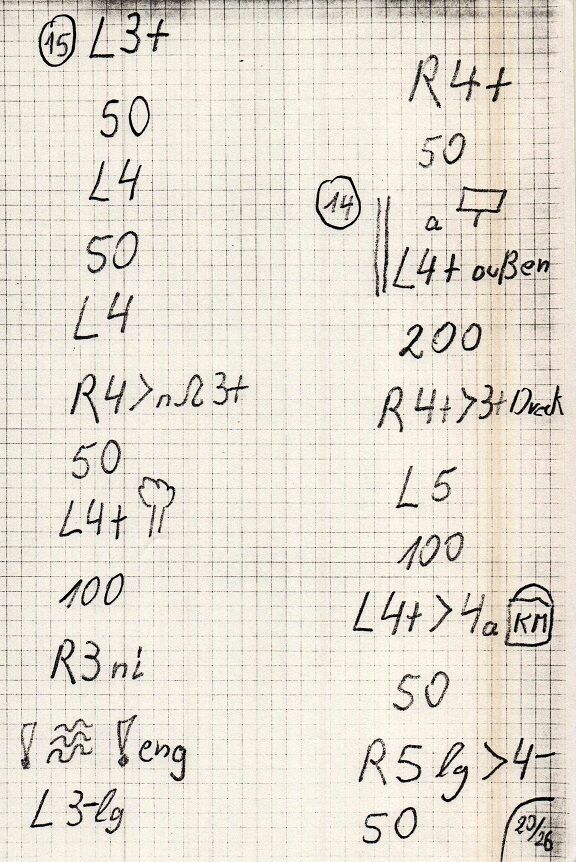 15 L3+
50
L4
50
L4
R4>nΩ3+
50
L4+
100
R3ni
! ! eng
L3-lg
R4+
50
14 a
L4+ außen
200
R4+>3+Dreck
L5
100
L4+>4a KM
50
R5 lg >4-
50
20/26